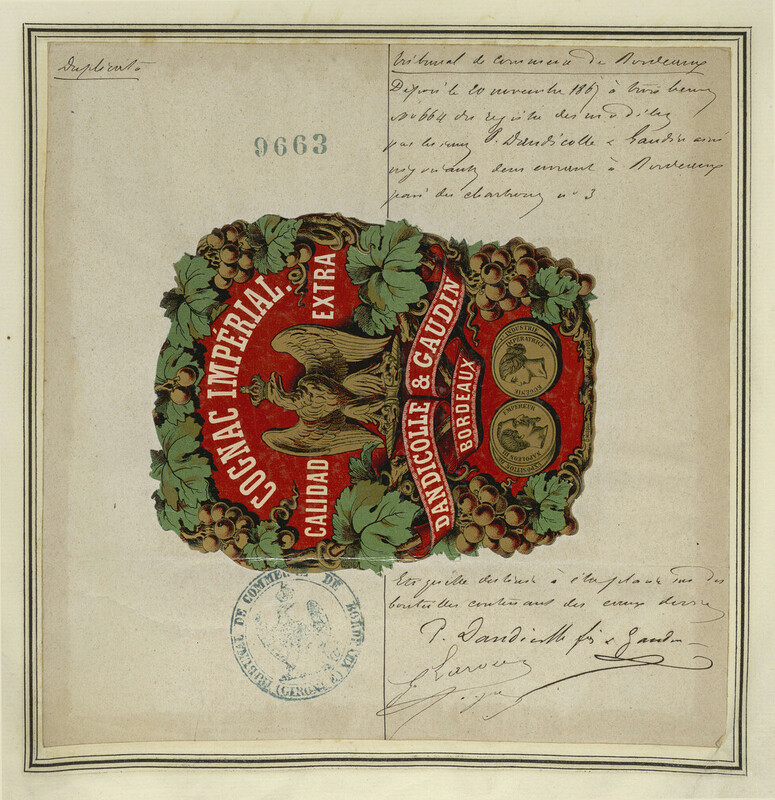 Duplicata
9663
Tribunal de Commerce de Bordeaux
Déposé le 20 novembre 1867 à trois heures
No 664 du registre des modèles
par les sieurs P. Dandicolle & Gaudin ainé
négociants demeurant à Bordeaux
pavé des chartrons no 3
COGNAC IMPÉRIAL.
CALIDAD EXTRA
DANDICOLLE & GAUDIN
BORDEAUX
L'INDUSTRIE
IMPÉRATRICE
EUGÉNIE
EMPEREUR
NAPOLEON III
EXPOSITION
TRIBUNAL DE COMMERCE DE BORDEAUX
(GIRONDE)
Etiquette destinée à être placée sur des
bouteilles contenant des eaux de vie
P. Dandicolle & Gaudin